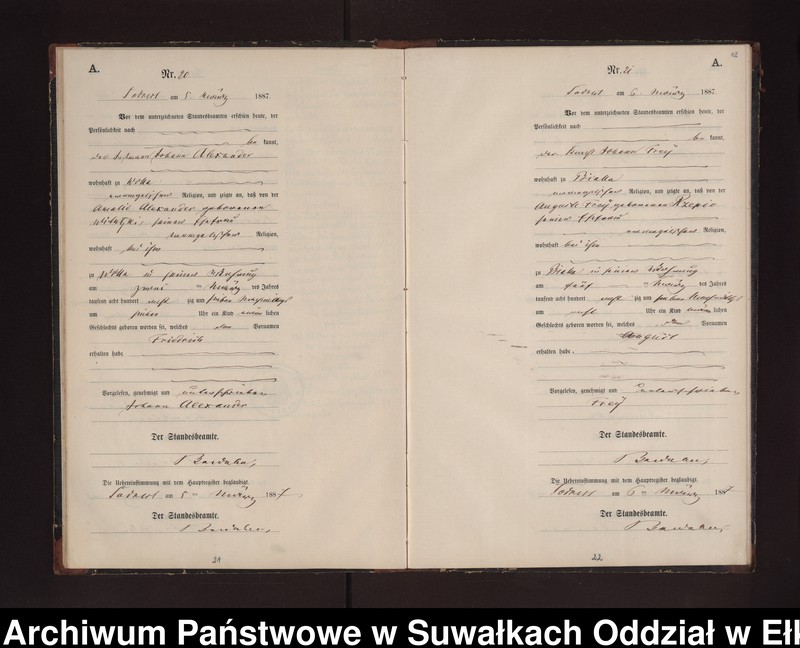 A.
Nr. 20
am 5. 1887.
Vor dem unterzeichneten Standesbeamten erschien heute, der
Persönlichkeit nach
be kannt,
der Johann Alexander
wohnhaft zu
evangelischer Religion, und zeigte an, daß von der
Amalie Alexander geborenen
seiner Ehefrau
evangelischer Religion,
wohnhaft bei ihm
zu in seiner Wohnung
am zwei März des Jahres
tausend acht hundert acht zig und sieben Nachmittags
um Uhr ein Kind männ lichen
Geschlechts geboren worden sei, welches den Vornamen
Friedrich
erhalten habe
Vorgelesen, genehmigt und unterschrieben
Johann Alexander
Der Standesbeamte.
Die Uebereinstimmung mit dem Hauptregister beglaubigt.
am 5 ten März 1887
Der Standesbeamte.
21
A.
Nr. 21
am 6. März 1887.
Vor dem unterzeichneten Standesbeamten erschien heute, der
Persönlichkeit nach
be kannt,
der Johann Frey
wohnhaft zu
evangelischer Religion, und zeigte an, daß von der
Auguste Frey geborenen
seiner Ehefrau
evangelischer Religion,
wohnhaft bei ihm
zu in seiner Wohnung
am März des Jahres
tausend acht hundert acht zig und sieben
um acht Uhr ein Kind männ lichen
Geschlechts geboren worden sei, welches den Vornamen
August
erhalten habe
Vorgelesen, genehmigt und unterschrieben
Frey
Der Standesbeamte.
Die Uebereinstimmung mit dem Hauptregister beglaubigt.
am 6 ten März 1887
Der Standesbeamte.
22
Archiwum Państwowe w Suwałkach Oddział w Ełk